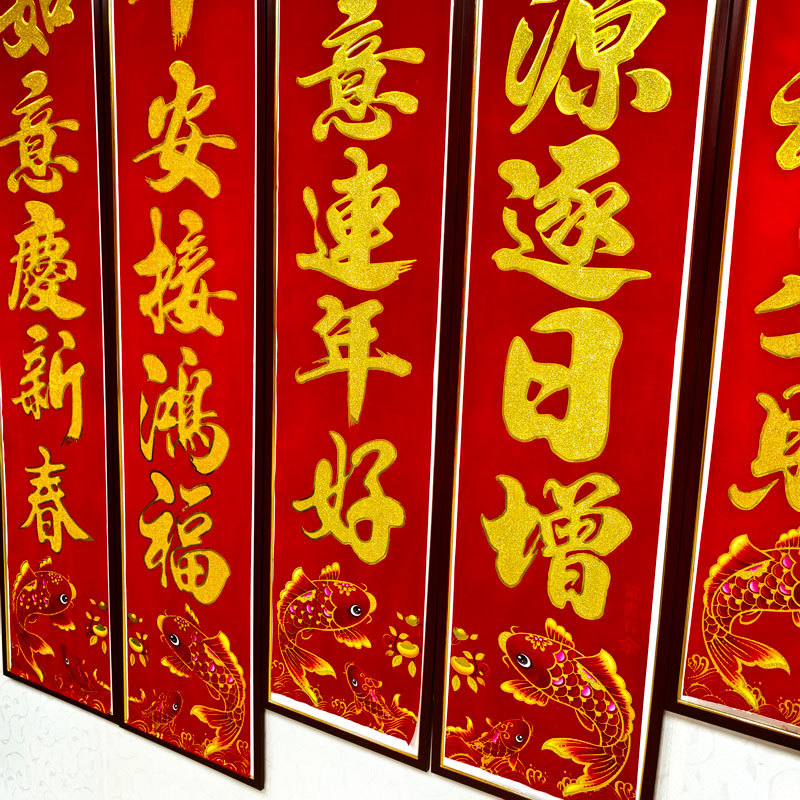 如意慶新春
安接鴻福
意連年好
源逐日增